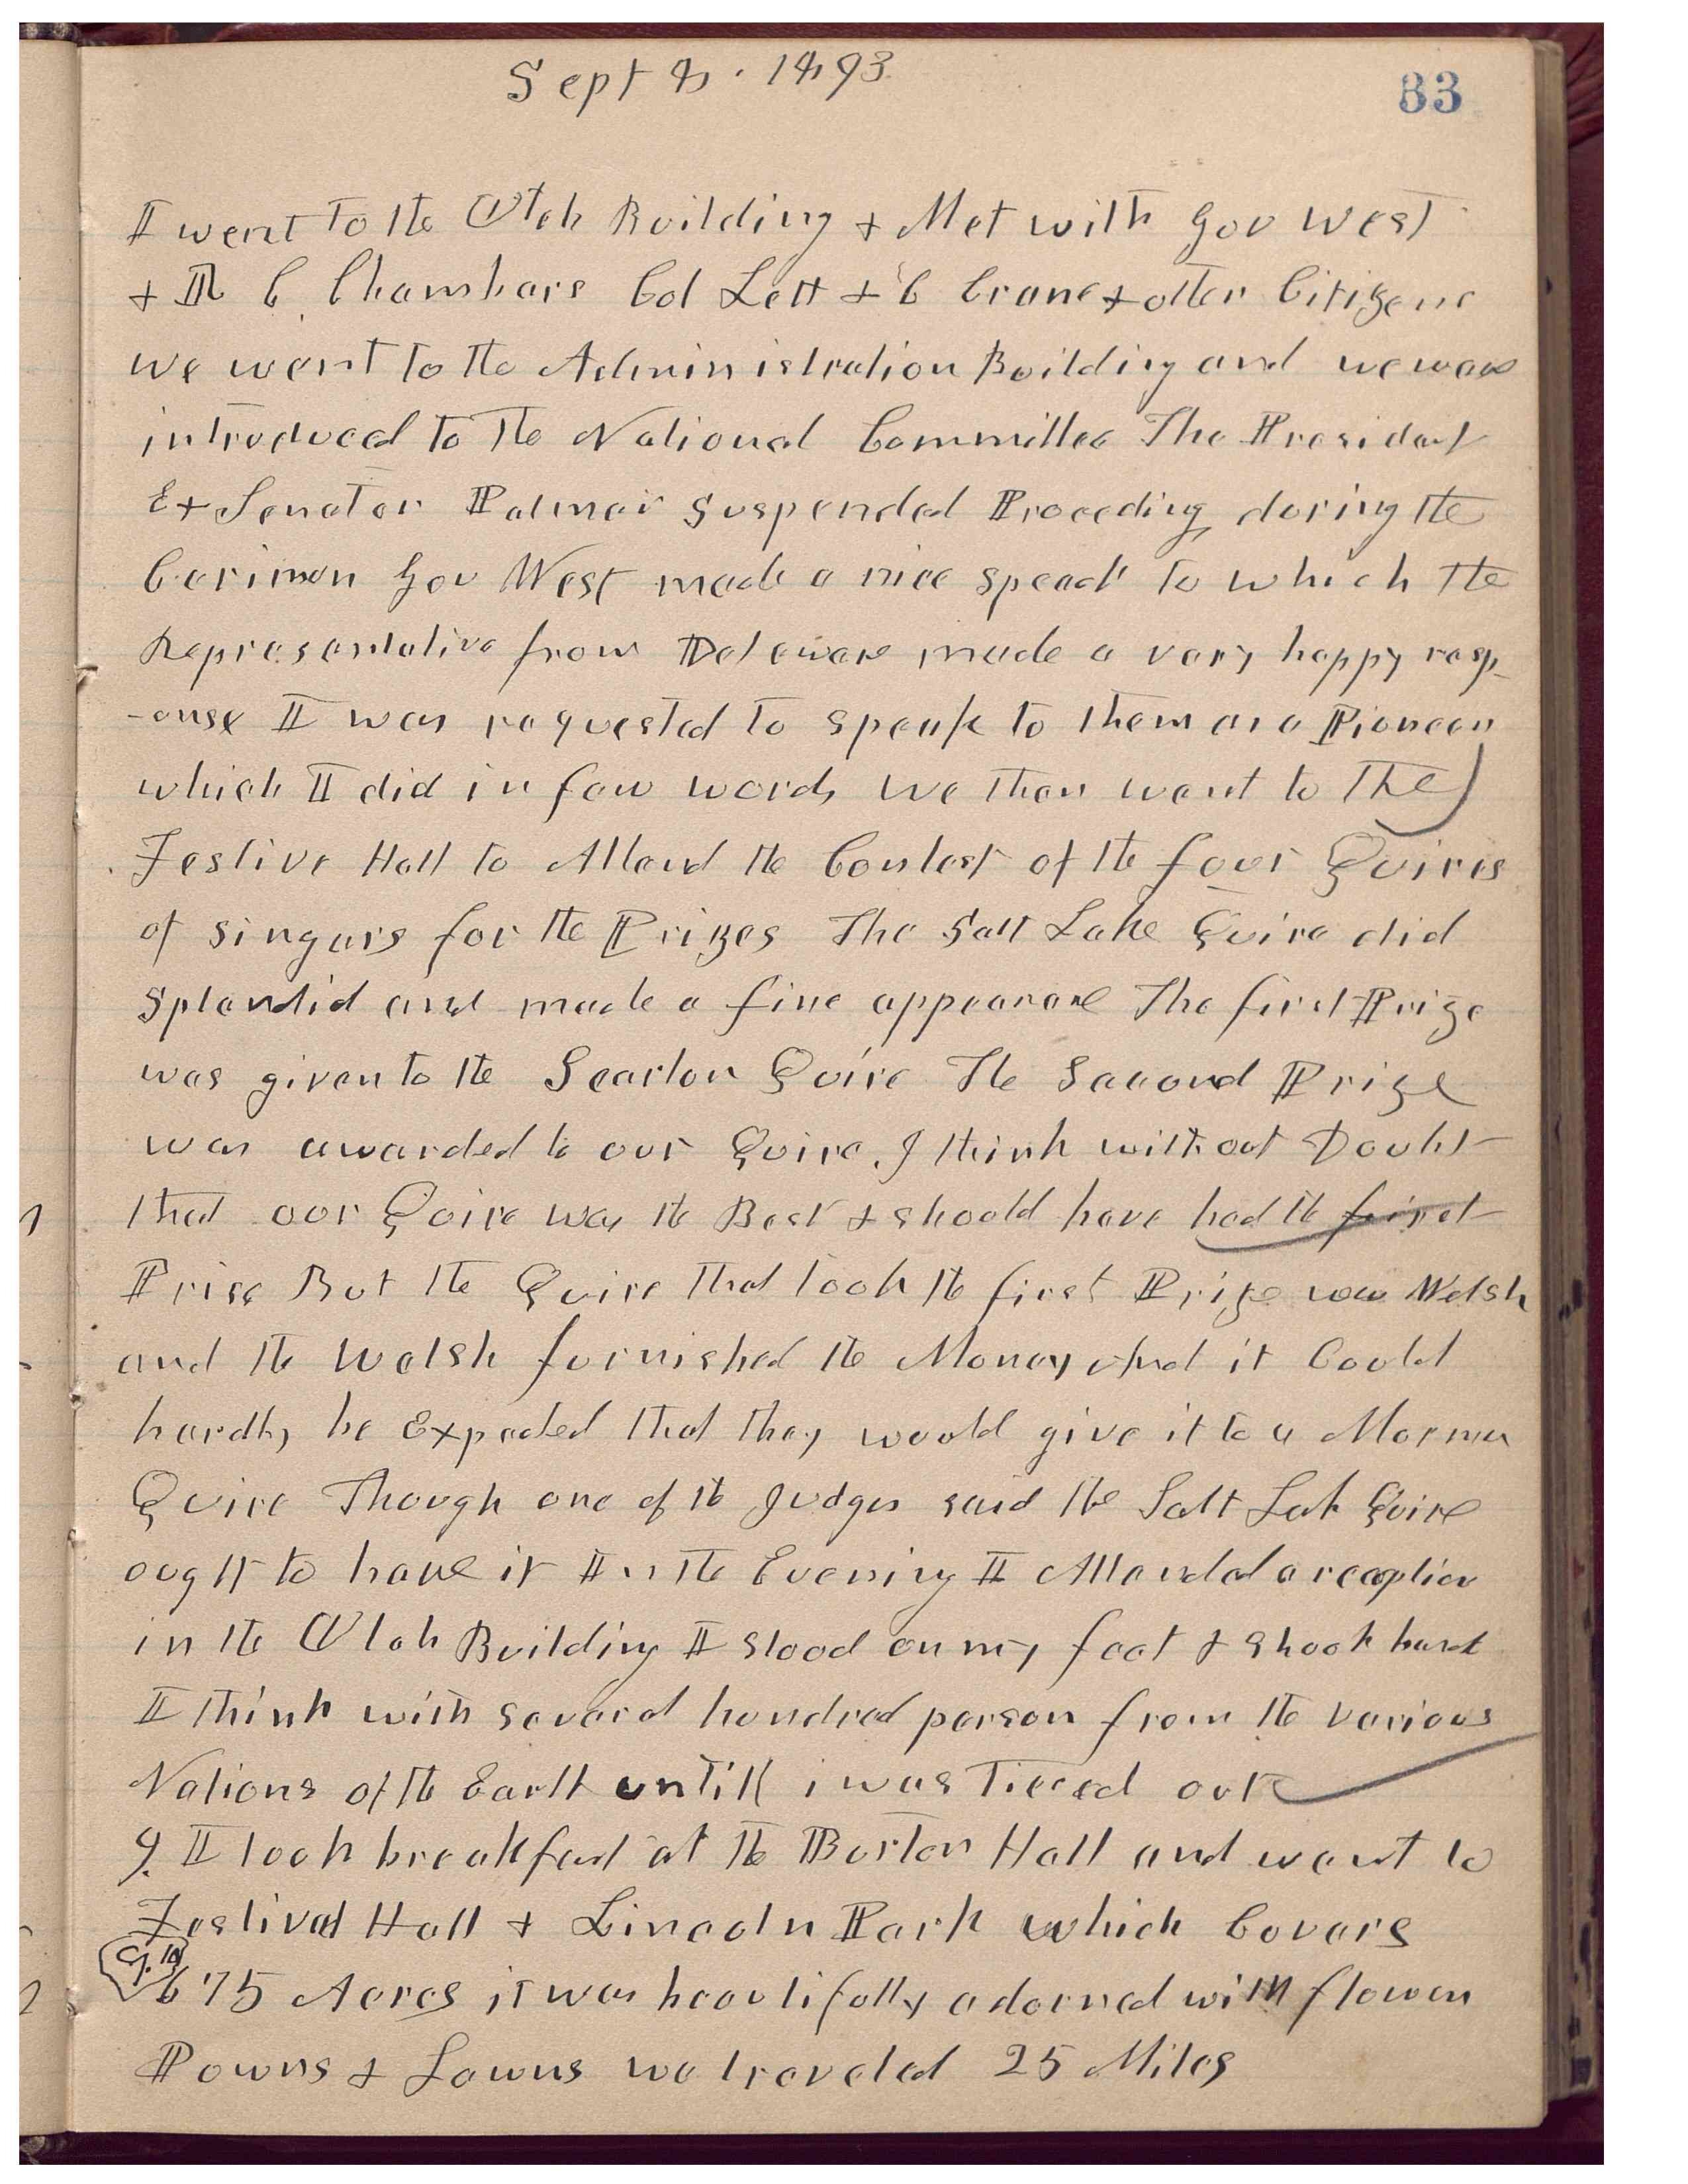 Sept 8. 1893
33
I went to the Utah Building & Met with Gov West
& R C Chambers Col Lett & C Crane & other Citizens
we went to the Administration Building and we was
introduced to the National Committee The President
Ex Senator Palmer Suspended Proceeding during the
Cerimon Gov West made a nice speach to which the
Representative from Deleware made a very happy resp-
-onse I was requested to speak to them as a Pioneer
which I did in few words we then went to the
Festive Hall to Attend the Contest of the four Quires
of singers for the Prizes The Salt Lake Quire did
Splendid and made a fine appearane The first Prize
was given to the Scarlon Quire The Second Prize
was awarded to our Quire. I think without Doubt
that our Quire was the Best & should have had the first
Prise But the Quire that took the first Prize was Welsh
and the Welsh furnished the Money And it Could
hardly be Expected that they would give it to a Mormon
Quire Though one of the Judges said the Salt Lak Quire
ought to have it In the Evening I Attended a reception
in the Utah Building I stood on my feet & shook hand
I think with several hundred person from the various
Nations of the Earth untill i was Tiered out
9. I took breakfast at the Boston Hall and went to
Festival Hall & Lincoln Park which Covers
9.10
675 Acres it was beautifully adorned with flowers
Powns & Lawns we traveled 25 Miles